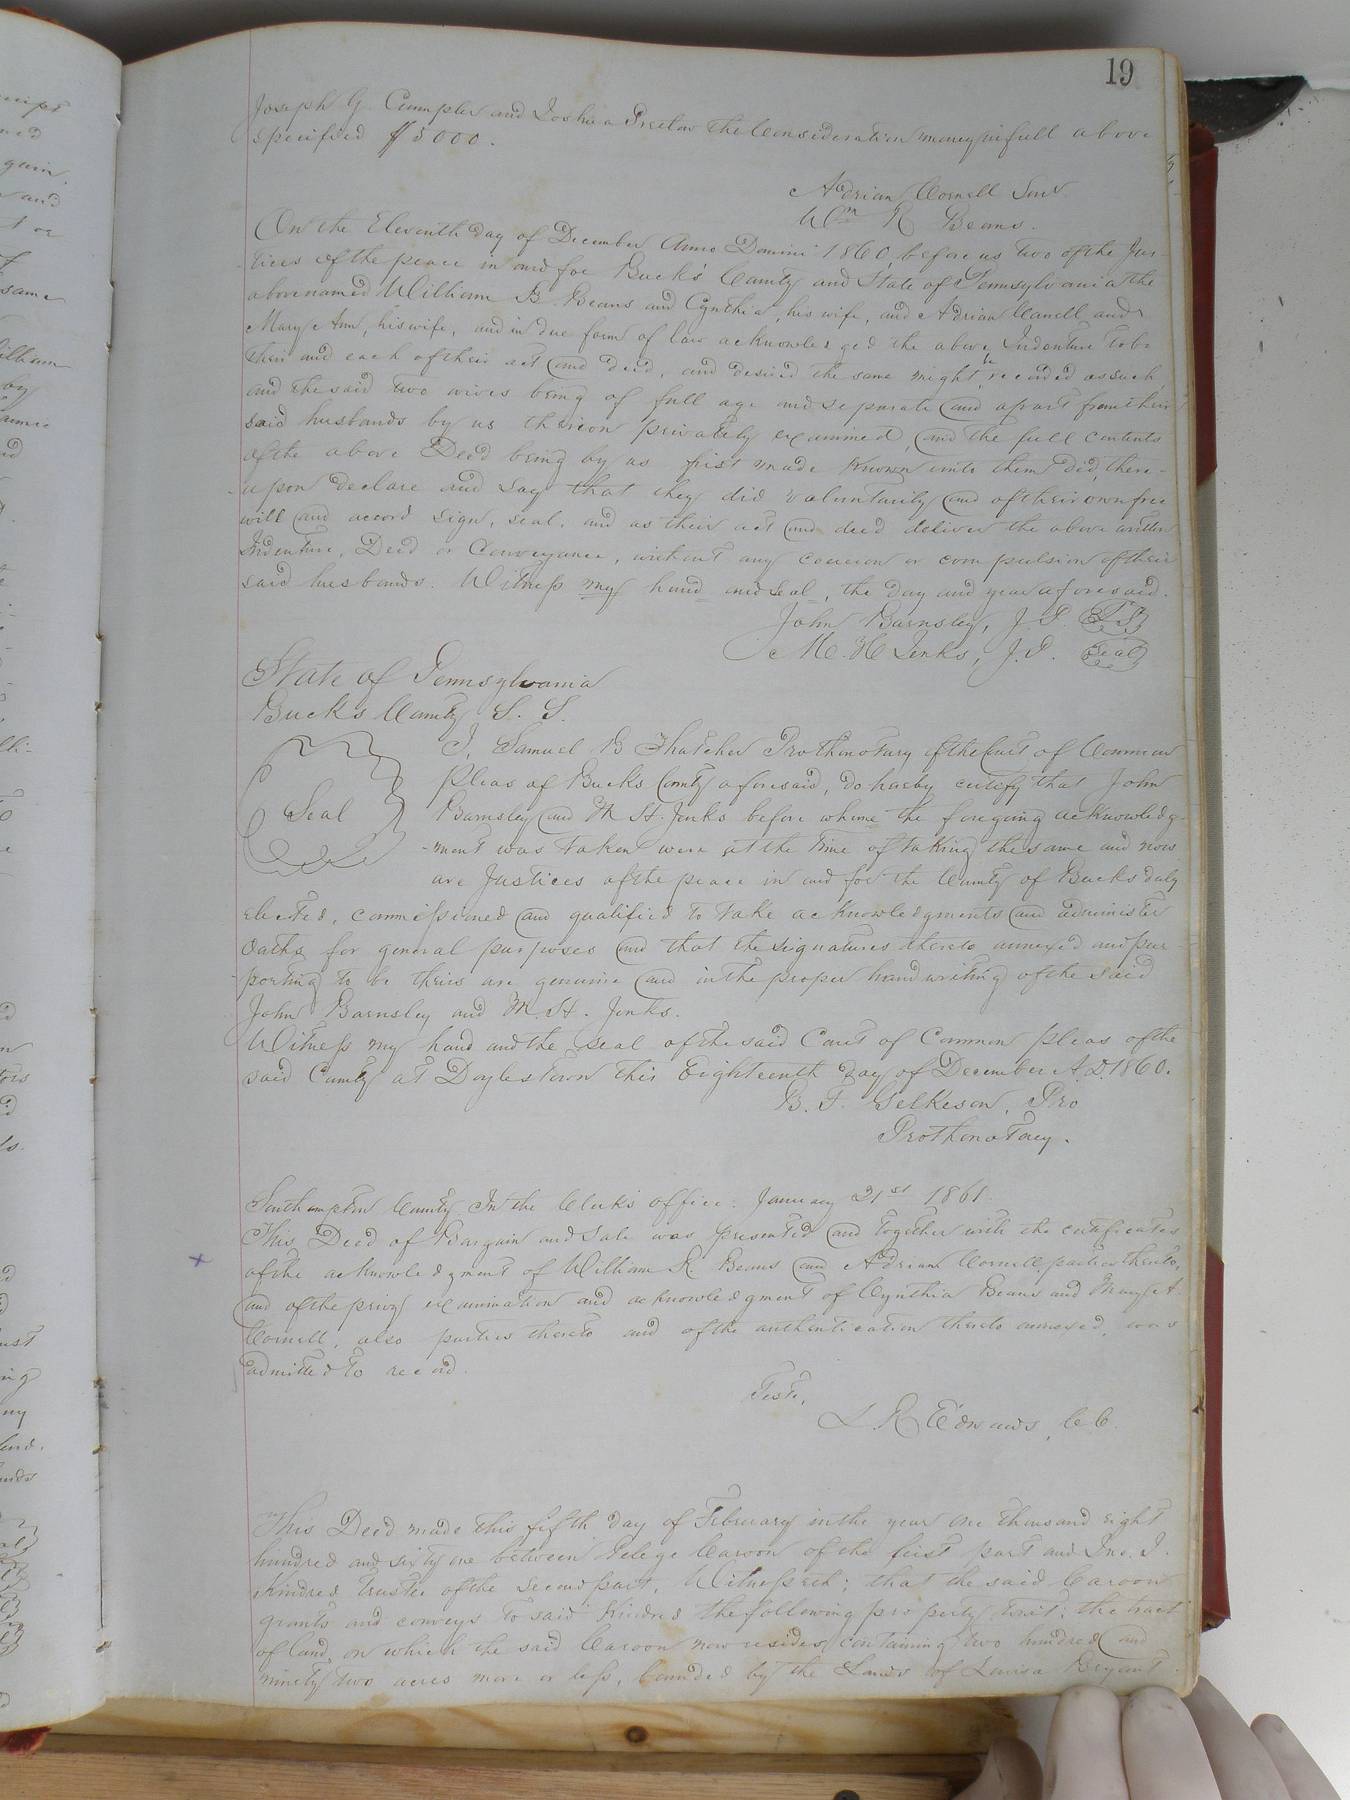 19
Joseph G. Crumpler and Joshua Pretlow the Consideration money in full above
specified $5000.
Adrian Cornell Senr
Wm R Beans.
On the Eleventh day of December Anno Domini 1860, before us two of the Jus-
tices of the peace in and for Bucks County and State of Pennsylvania the
abovenamed William B. Beans and Cynthia, his wife, and Adrian Connell and
Mary Ann, his wife, and in due form of law acknowledged the above Indenture to be
their and each of their act and deed, and desired the same might be recorded as such,
and the said two wives being of full age and separate and apart from their
said husbands by us thereon privately examined, and the full contents
of the above Deed being by us first made known unto them did, there-
-upon declare and say that they did voluntarily and of their own free
will and accord sign, seal, and as their act and deed deliver the above written
Indenture, Deed or Conveyance, without any coercion or compulsion of their
said husbands. Witness my hand and seal, the day and year aforesaid.
John Barnsley, J. P.
M. H Jenks, J. P. Seal
State of Pennsylvania
Bucks County S. S.
I, Samuel B Thatcher Prothonotary of the Court of Common
Pleas of Bucks County aforesaid, do hereby certify that John
Seal Barnsley and M H. Jenks before whome the foregoing acknowledg-
-ment was taken were at the time of taking the same and now
are Justices of the peace in and for the County of Bucks duly
elected, commissioned and qualified to take acknowledgments and administer
Oaths for general purposes and that the signatures thereto annexed and pur-
-porting to be theirs are genuine and in the proper handwriting of the said
John Barnsley and M H. Jenks.
Witness my hand and the seal of the said Court of Common Pleas of the
said County at Doylestown this Eighteenth day of December A.D. 1860.
B. F. Gelkeson, Pro
Prothonotary.
Southampton County In the Clerk's office: January 21st 1861.
This Deed of Bargain and Sale was presented and together with the certificates
x of the acknowledgment of William R Beans and Adrian Cornell parties thereto,
and of the privy examination and acknowledgment of Cynthia Beans and Mary A.
Cornell, also parties thereto and of the authentication thereto annexed, was
admitted to record.
Teste,
L R Edwards, C C.
This Deed made this fifth day of February in the year one thousand eight
hundred and sixty one between Pelege Caroon of the first part and Jno. J.
Kindred Trustee of the second part, Witnesseth; that the said Caroon
grants and conveys to said Kindred the following property towit: the tract
of land, on which the said Caroon now resides containing two hundred and
ninety two acres more or less, bounded by the Lands of Louisa Bryant